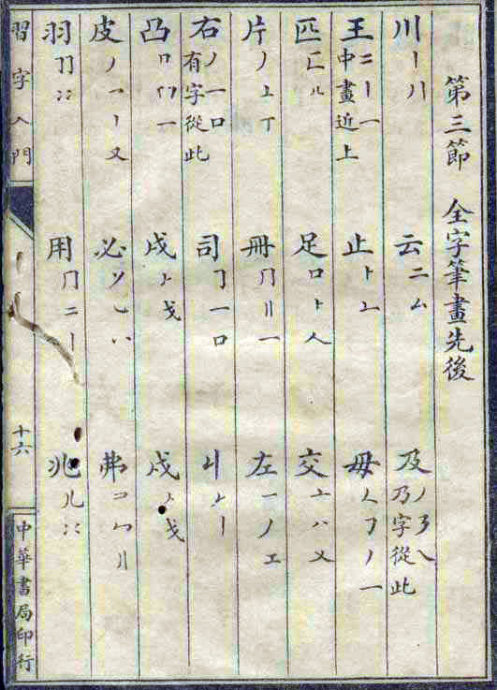 第三節 全字筆畫先後
川 丨 丿丨 云 二 厶 及 丿 ㇋ ㇏ 乃字從此
王 二 丨 一 中畫近上 止 ⺊ 丄 毋 𠃊 ㇆ 丿 一
匹 匚 儿 足 口 ⺊ 人 交 亠 八 乂
片 丿 丄 丅 冊 冂 〢 一 左 一 丿 工
右 丿 一 口 有字從此 司 𠃌 一 口 丩 丨
凸 一 戈 戈
皮 丿 乛 丨 又 必 弗 コ 〢
羽 用 冂 二 丨 兆 儿
習字入門 十六 中華書局印行